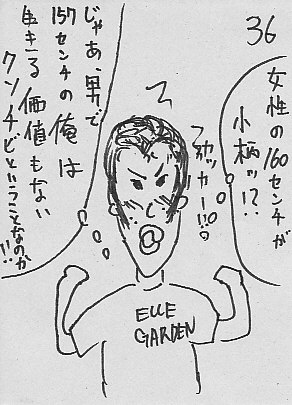 36
女性の160センチが
小柄ッ!?
カッカー!!!
じゃあ、男で
157センチの俺は
生きる価値もない
クソチビということなのか!!
ELLE
GARDEN